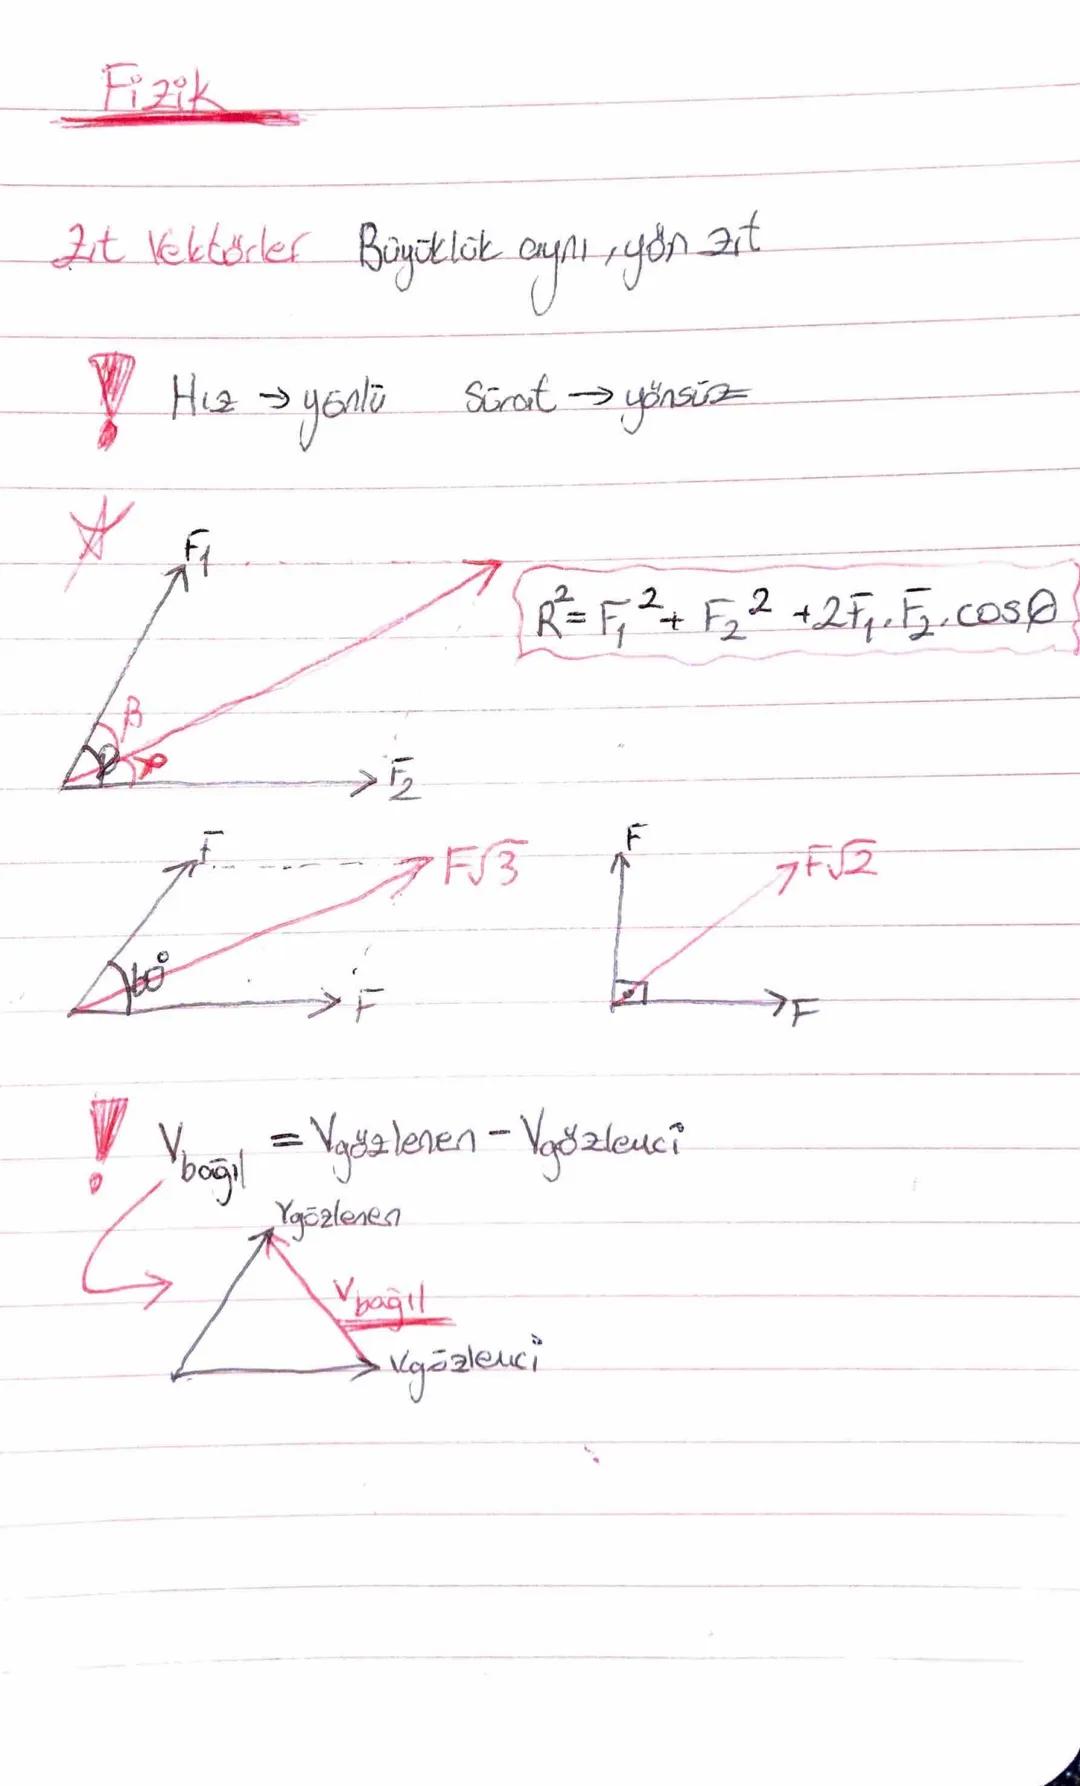 Fizik
Zıt Vektörler Büyüklük aynı, yön zıt
! Hız → yönlü Sürat → yönsüz
F₁
R² = F₁² + F₂² + 2F₁.F₂.cosθ
β
θ α
F₂
F F√3 F F√2
60°
F F
! Vbağıl = Vgözlenen - Vgözlemci
Vgözlenen
Vbağıl
Vgözlemci